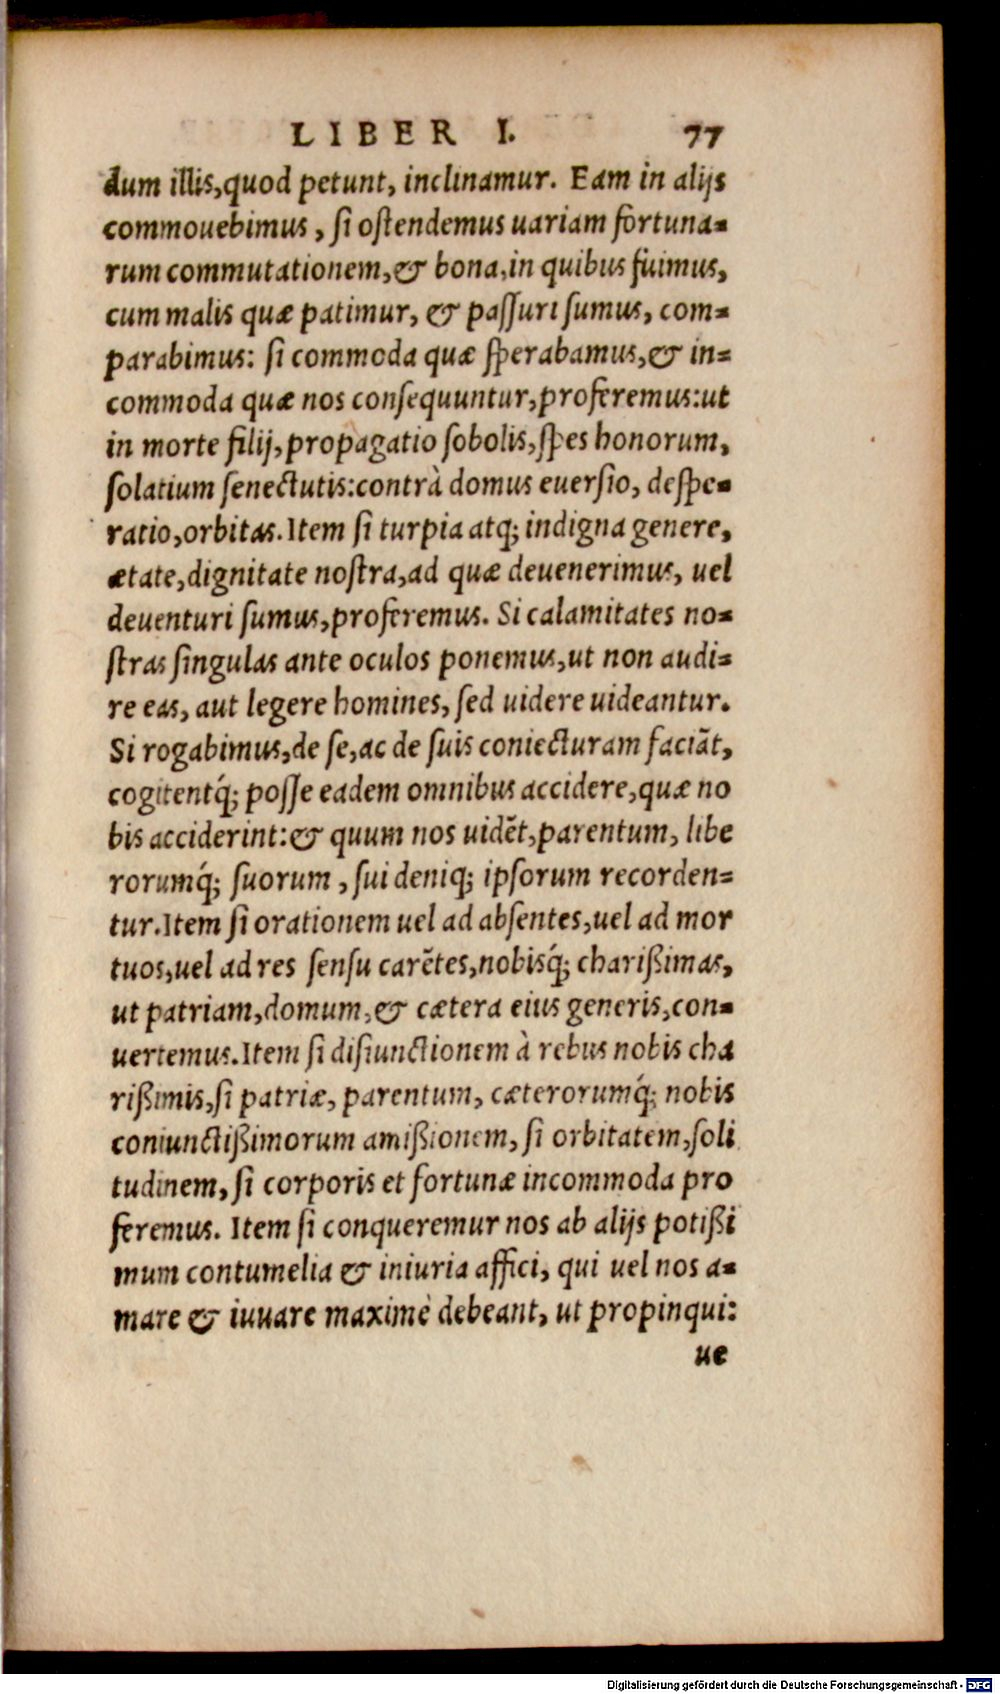 LIBER I. 77
dum illis, quod petunt, inclinamur. Eam in alijs
commouebimus, si ostendemus uariam fortuna-
rum commutationem, & bona, in quibus fuimus,
cum malis quæ patimur, & passuri sumus, com-
parabimus: si commoda quæ sperabamus, & in-
commoda quæ nos consequuntur, proferemus: ut
in morte filij, propagatio sobolis, spes honorum,
solatium senectutis: contrà domus euersio, despe-
ratio, orbitas. Item si turpia atq; indigna genere,
ætate, dignitate nostra, ad quæ deuenerimus, uel
deuenturi sumus, proferemus. Si calamitates no-
stras singulas ante oculos ponemus, ut non audi-
re eas, aut legere homines, sed uidere uideantur.
Si rogabimus, de se, ac de suis coniecturam faciāt,
cogitentq́; posse eadem omnibus accidere, quæ no
bis acciderint: & quum nos uidēt, parentum, libe
rorumq́; suorum, sui deniq; ipsorum recorden-
tur. Item si orationem uel ad absentes, uel ad mor
tuos, uel ad res sensu carētes, nobisq́; charißimas,
ut patriam, domum, & cætera eius generis, con-
uertemus. Item si disiunctionem à rebus nobis cha
rißimis, si patriæ, parentum, cæterorumq́; nobis
coniunctißimorum amißionem, si orbitatem, soli
tudinem, si corporis et fortunæ incommoda pro
feremus. Item si conqueremur nos ab alijs potißi
mum contumelia & iniuria affici, qui uel nos a-
mare & iuuare maximè debeant, ut propinqui:
ue
Digitalisierung gefördert durch die Deutsche Forschungsgemeinschaft - DFG